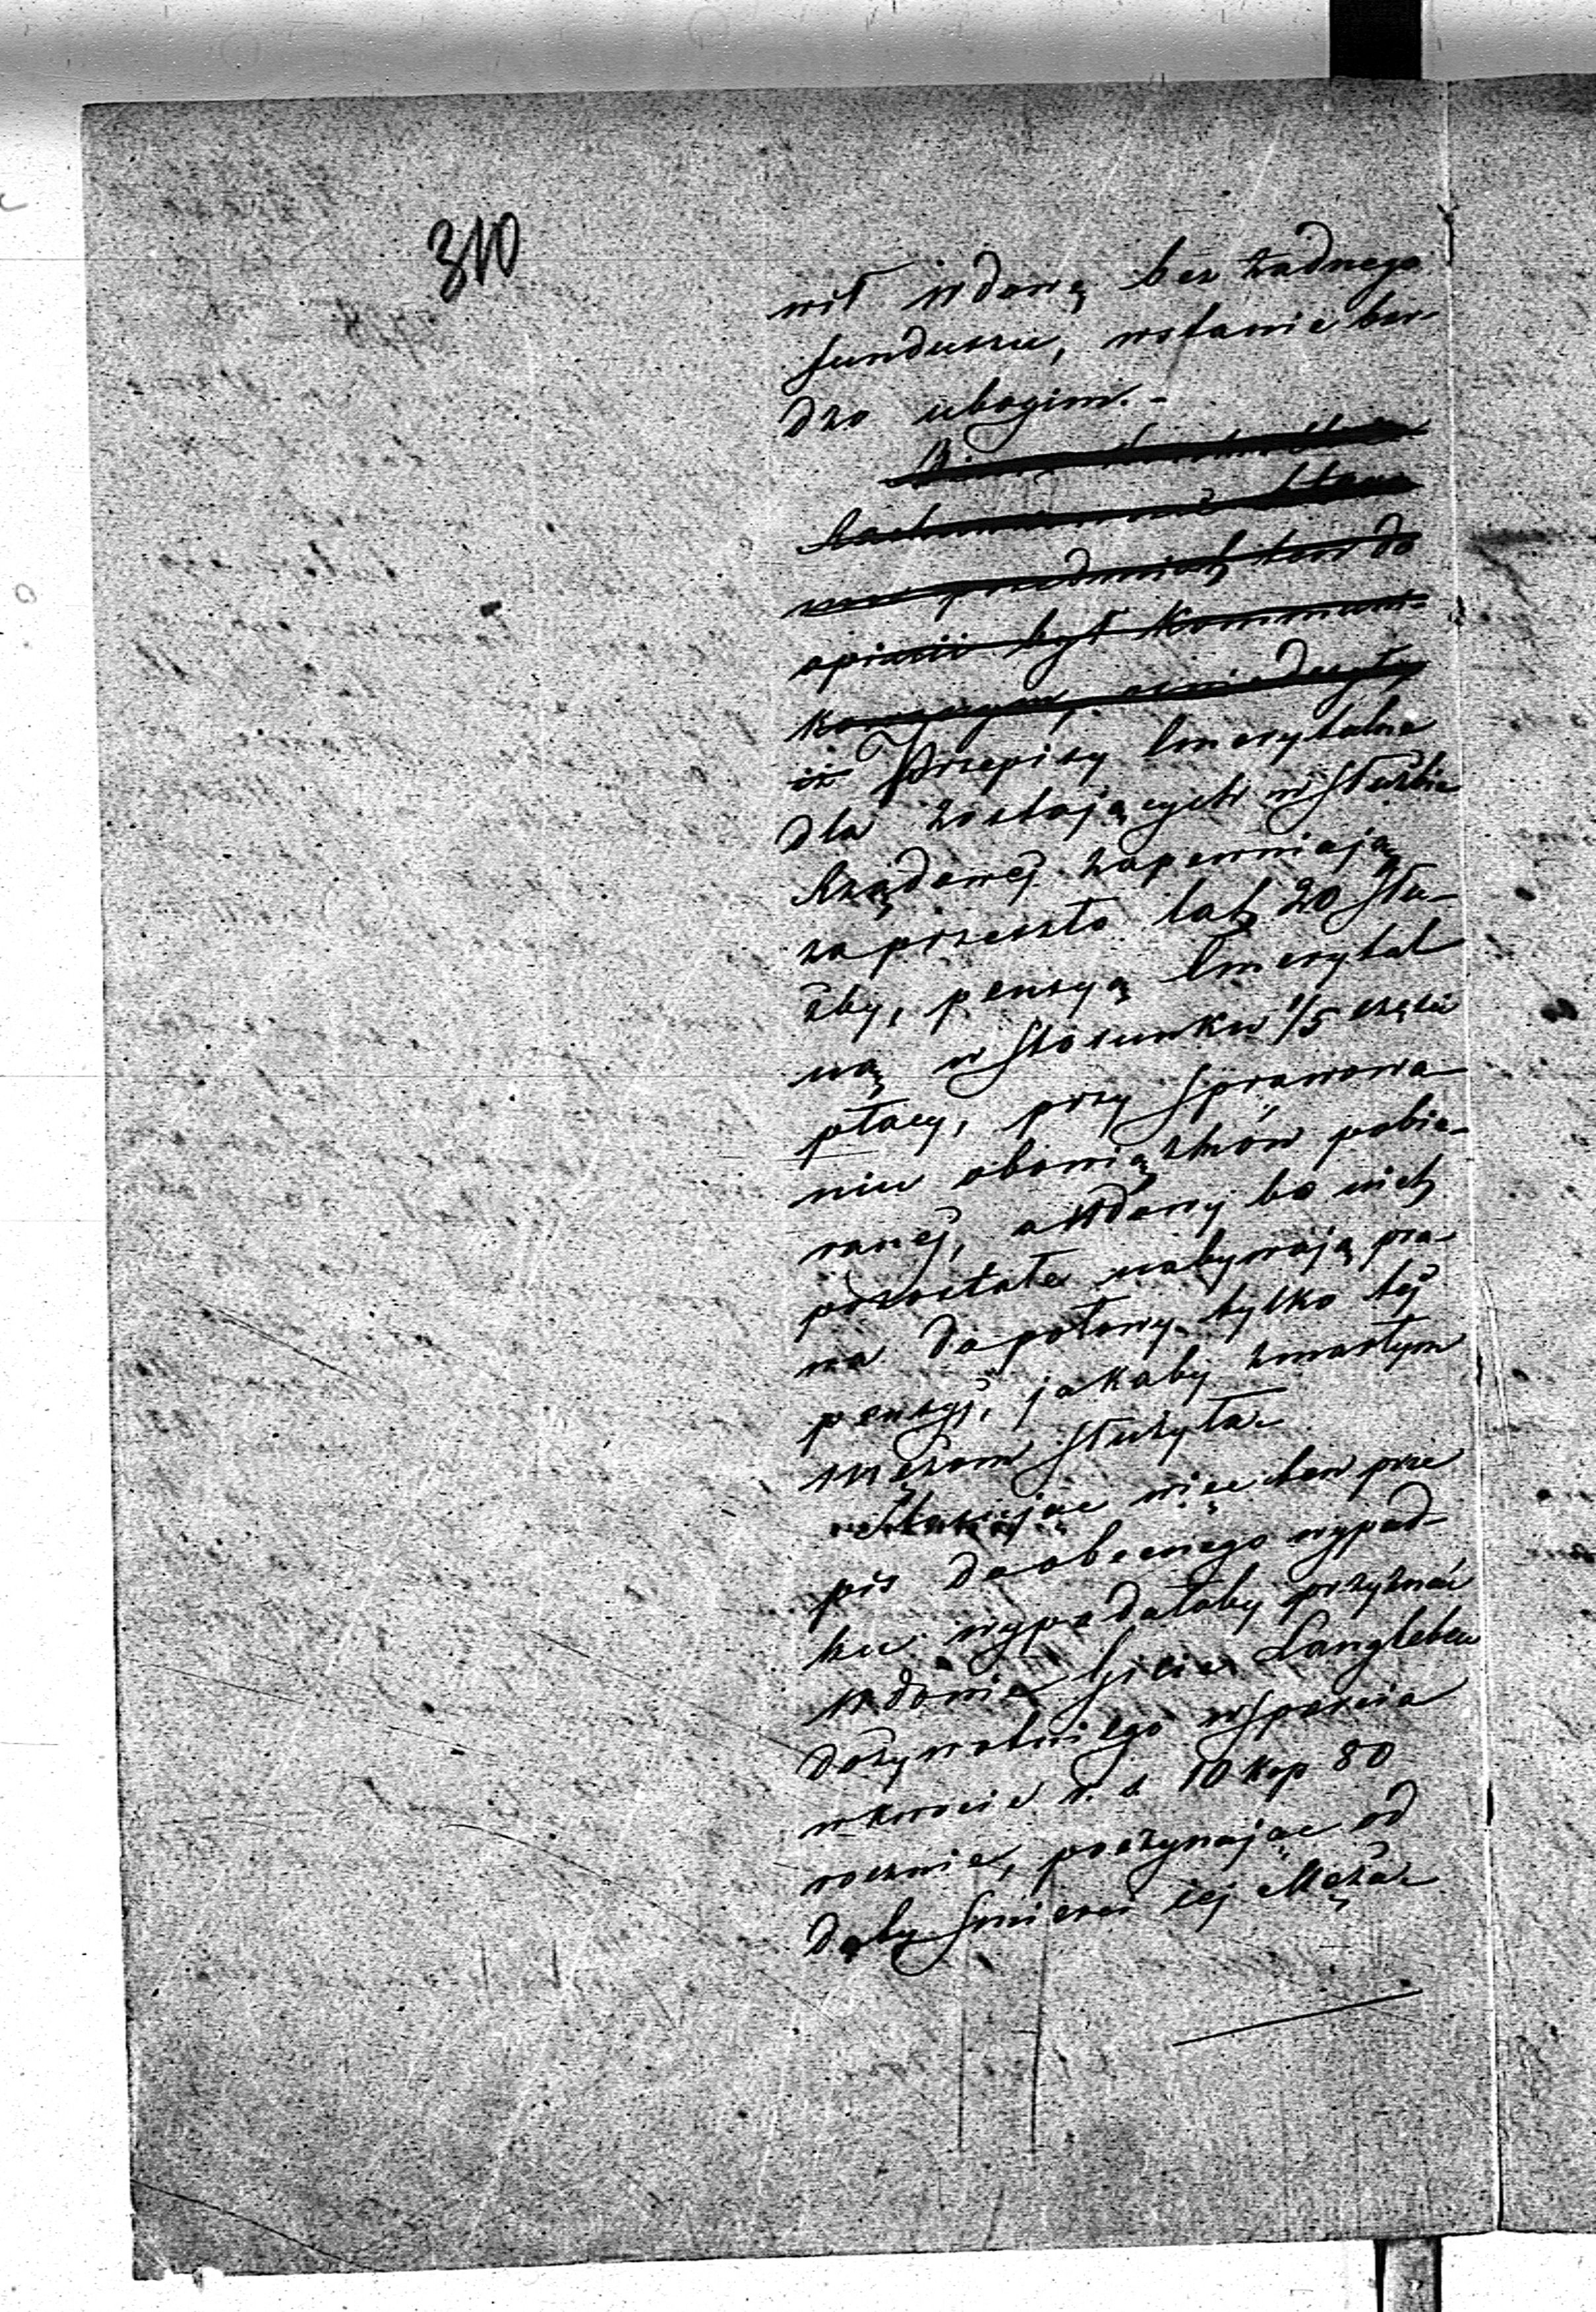 310
wił wdowę bez żadnego
funduszu, wstanie bar-
dzo ubogim.-
opinii był kommuni-
iż Przepisy Emerytalne
dla zostających w służbie
Rządowej zapewniają
za przeszło lat 20 słu-
żby, pensyą Emerytal
ną w stosunku 1/5 części
płacy, przy sprawowa-
niu obowiązków pobie-
ranej, a wdowy po nich
pozostałe nabywają pra
wa do połowy tylko tej
pensyi, jakaby zmarłym
mężom służyła.
więc ten prze
pis do obecnego wypad-
ku wypadałoby przyznać
wdowie Gicie Langleben
dożywotniego wsparcia
w kwocie r. s. 10 kop 80
rocznie, poczynając od
daty śmierci iej Męża.